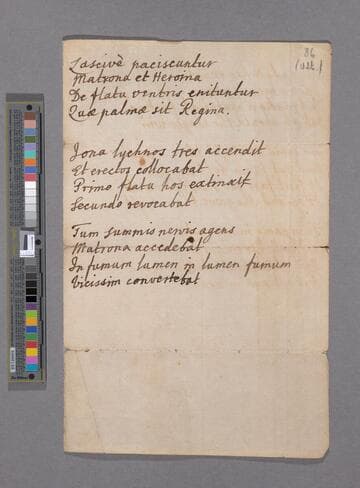 86
Lascivè paciscuntur
Matrona et Heroina
De flatu ventris enituntur
Quæ palmæ sit Regina.
Iona lychnos tres accendit
Et erectos collocabat
Primo flatu hos extinxit
Secundo revocabat
Tum summis nervis agens
Matrona accedebat
In fumum lumen in lumen fumum
Vicissim convertebat